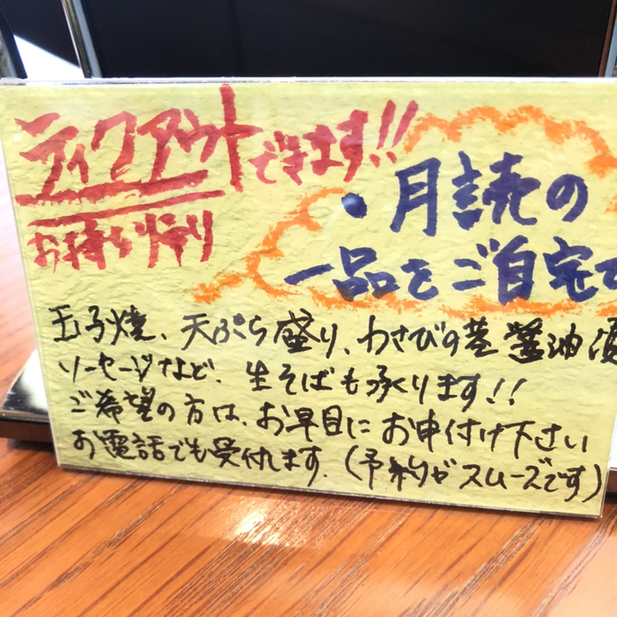 テイクアウトできます!!
お持ち帰り
・月読の
一品をご自宅で
玉子焼、天ぷら盛り、わさびの茎醤油漬
ソーセージなど、生そばも承ります!!
ご希望の方は、お早目にお申付け下さい
お電話でも受付します.(予約がスムーズです)